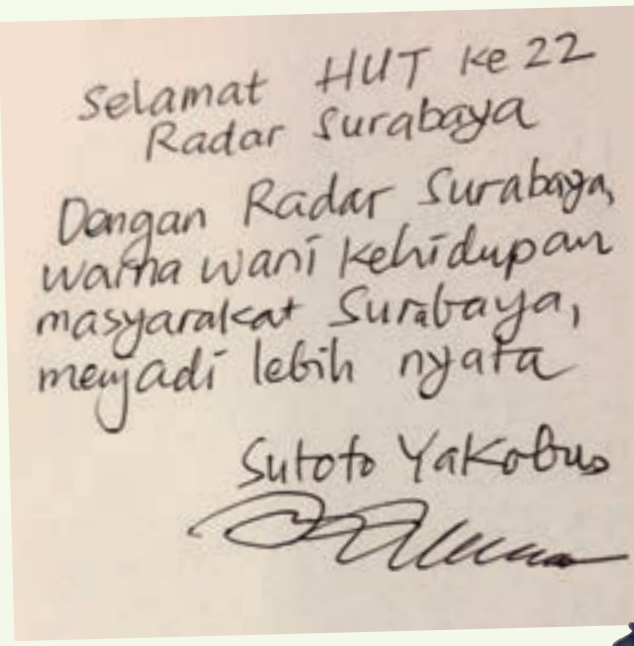 Selamat HUT ke 22
Radar Surabaya
Dengan Radar Surabaya,
warna wani kehidupan
masyarakat Surabaya,
menjadi lebih nyata
Sutoto Yakobus